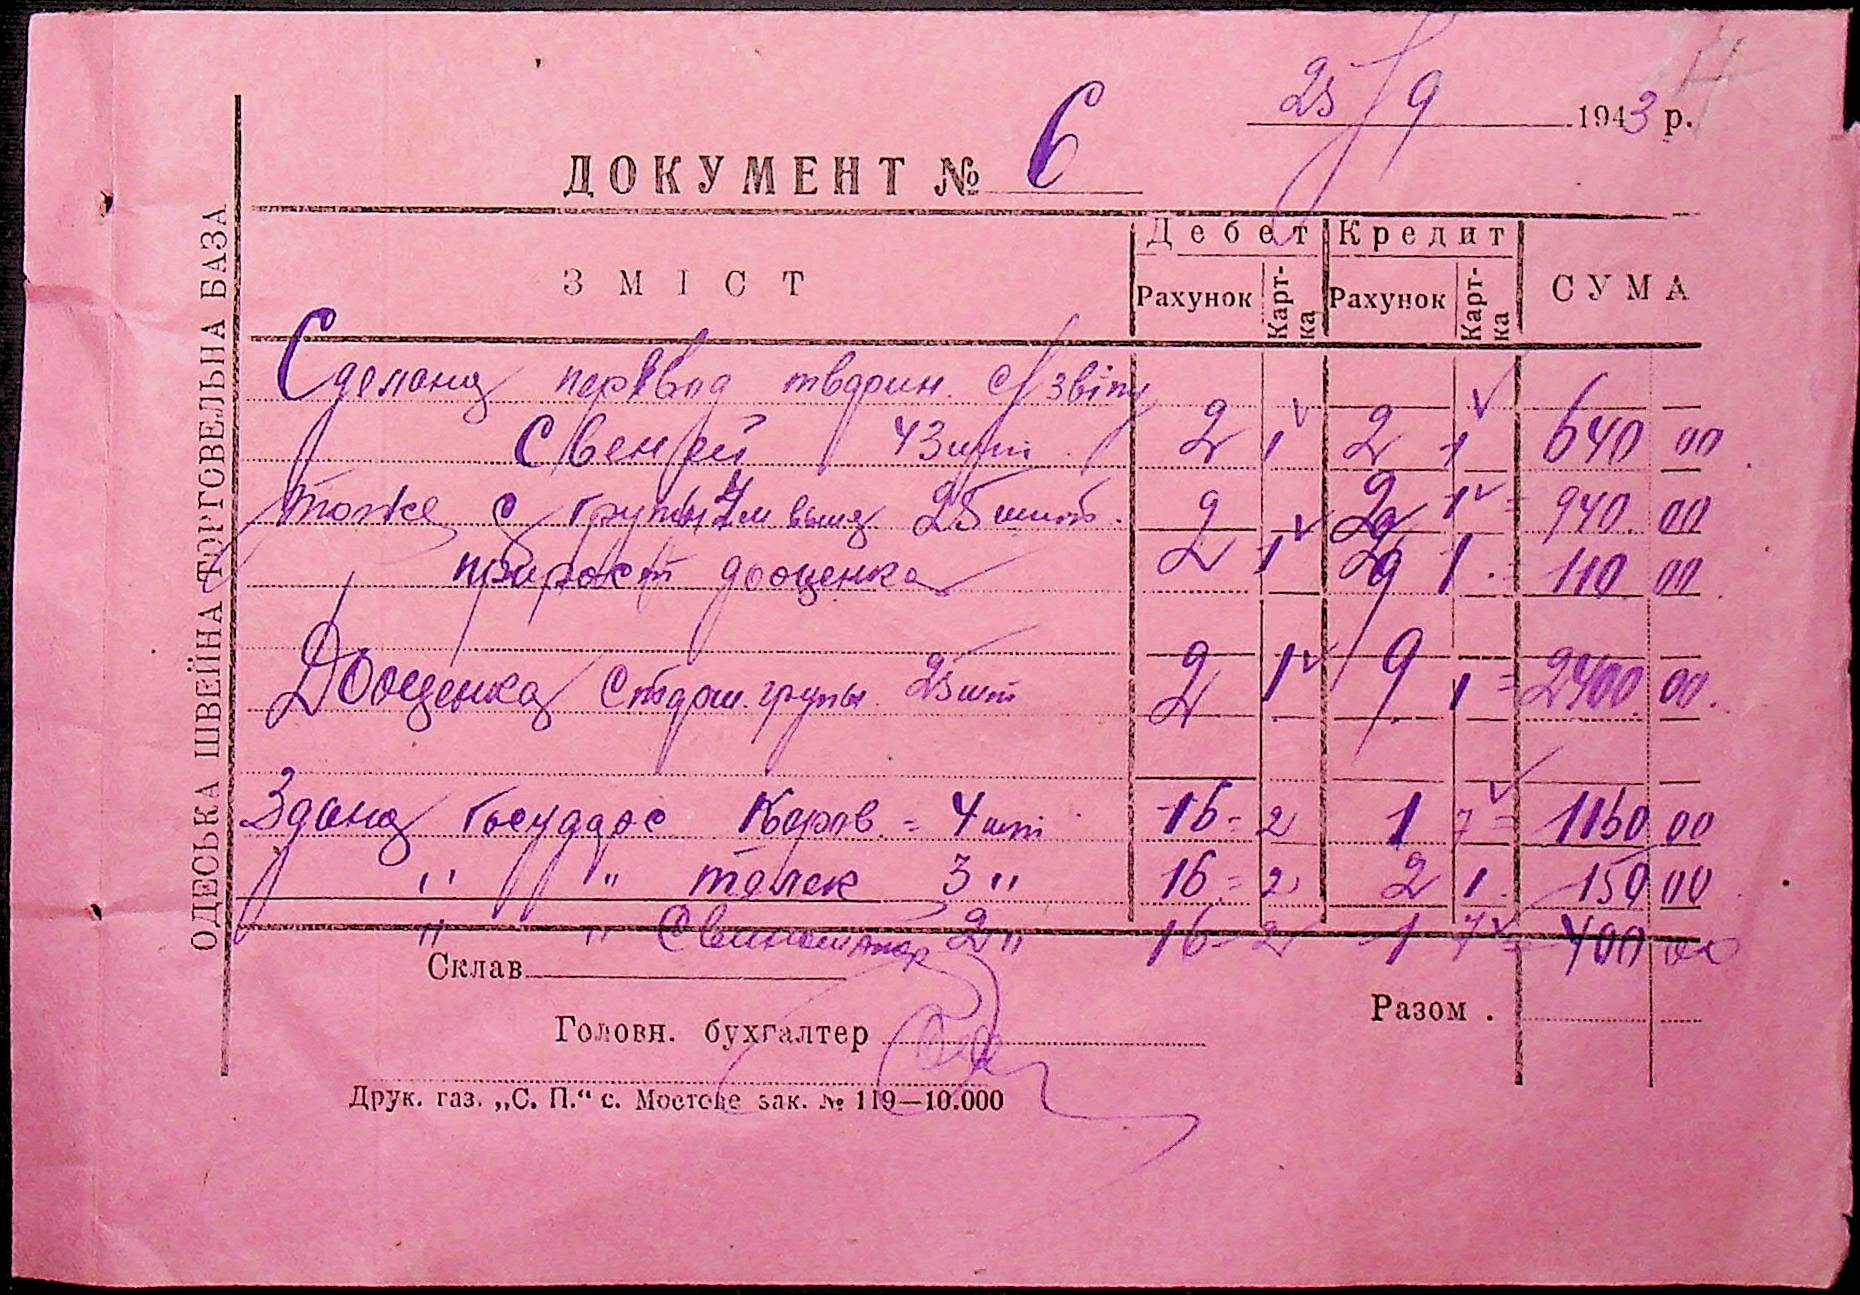 25/9 1943 р.
ДОКУМЕНТ № 6
ОДЕСЬКА ШВЕЙНА ТОРГОВЕЛЬНА БАЗА
ЗМІСТ Дебет Кредит СУМА
Рахунок Карт-ка Рахунок Карт-ка
Сделана перевод
43 шт 2 1 2 1 640 00
тоже с групы 25 шт. 2 2 1 940 00
прирост дооценка 2 1 9 1 110 00
Дооценка старш. групы 25 шт 2 1 9 1 2400 00
Здана государс Коров = 4 шт 16 2 1 7 1160 00
" " телек 3 " 16 2 2 1 150 00
" " 2 " 16 2 1 7 400 00
Склав
Разом .
Головн. бухгалтер
Друк. газ. „С. П.“ с. Мостове зак. № 119—10.000